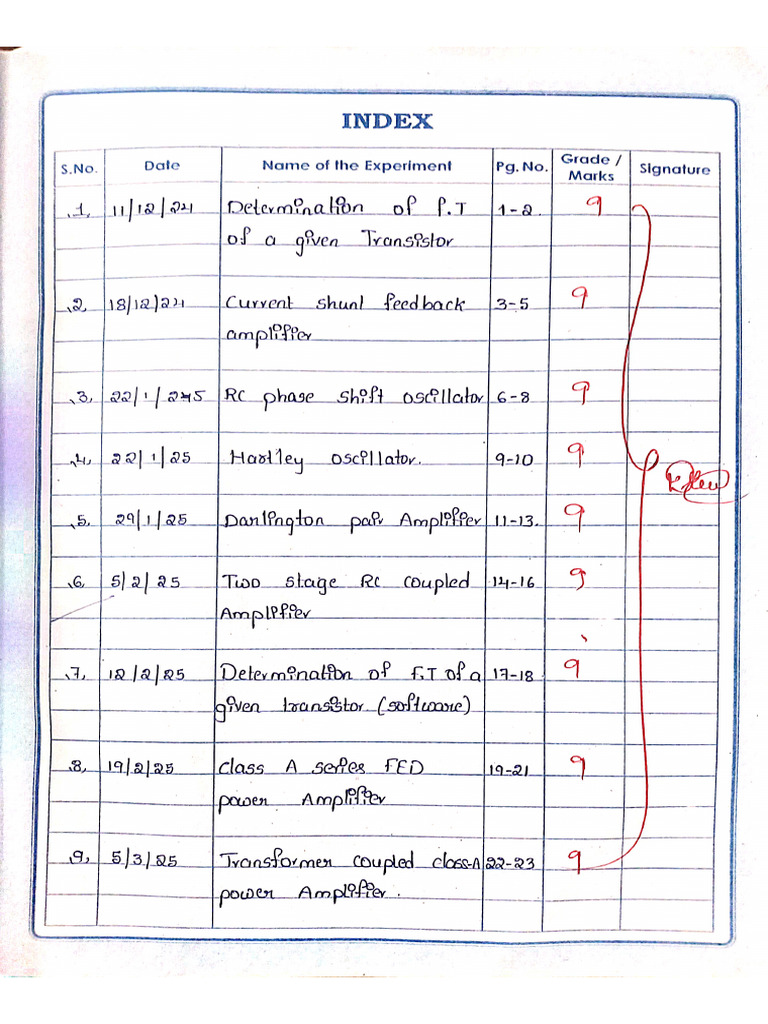 INDEX
S.No. Date Name of the Experiment Pg. No. Grade / Marks Signature
1. 11/12/24 Determination of f.T 1-2 9
of a given Transistor
2. 18/12/24 Current shunt feedback 3-5 9
amplifier
3. 22/1/25 RC phase shift oscillator 6-8 9
4. 22/1/25 Hartley oscillator. 9-10 9
5. 29/1/25 Darlington pair Amplifier 11-13. 9
6. 5/2/25 Two stage RC coupled 14-16 9
Amplifier
7. 12/2/25 Determination of f.T of a 17-18 9
given transistor (software)
8. 19/2/25 class A series FED 19-21 9
power Amplifier
9. 5/3/25 Transformer coupled class-A 22-23 9
power Amplifier.